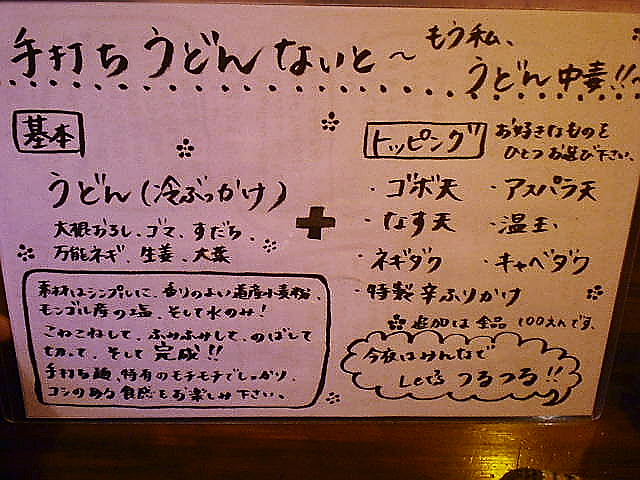 手打ちうどんないと〜
もう私、
うどん中毒!!
基本
うどん(冷ぶっかけ)
大根おろし、ゴマ、すだち、
万能ネギ、生姜、大葉
素材はシンプルに、香りのよい道産小麦粉、
モンゴル産の塩、そして水のみ!
こねこねして、ふみふみして、のばして
切って、そして完成!!
手打ち麺、特有のモチモチでしっかり、
コシのある食感をお楽しみ下さい。
+
トッピング
お好きなものを
ひとつお選び下さい。
・ゴボ天 ・アスパラ天
・なす天 ・温玉
・ネギダク ・キャベダク
・特製辛ふりかけ
追加は全品100えんです。
今夜はみんなで
Let's つるつる!!